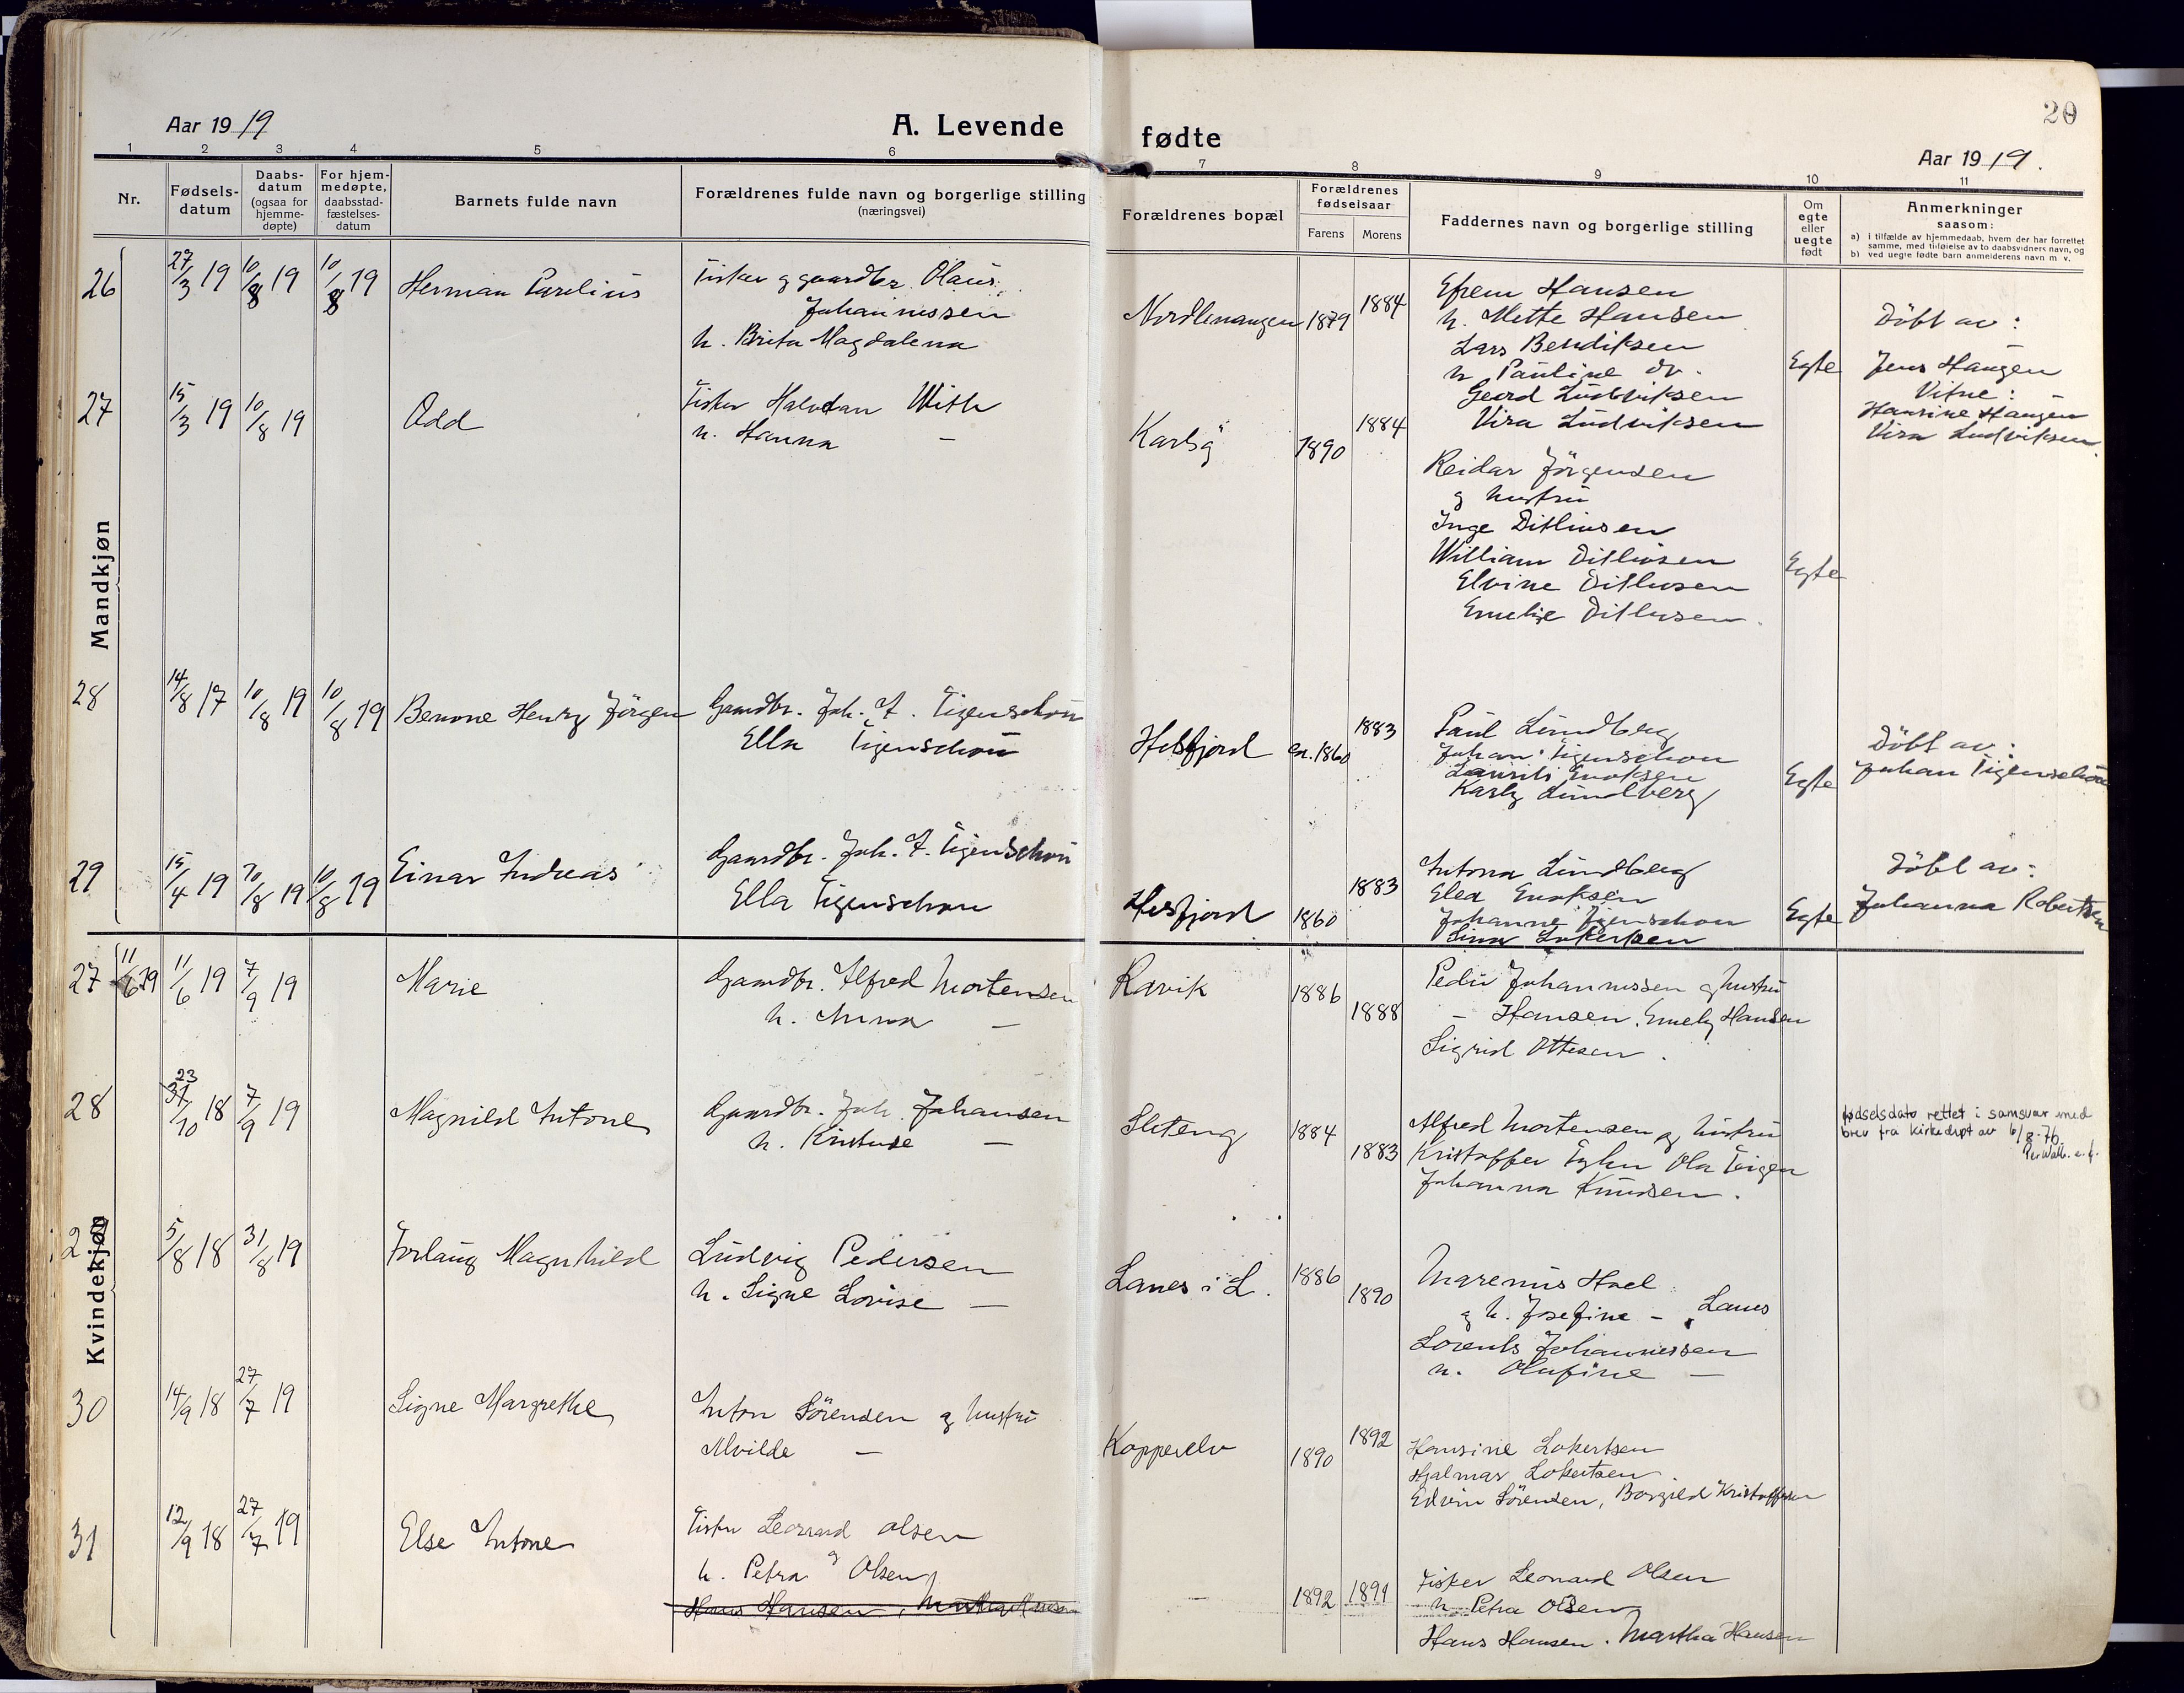 20
Aar 1919
A. Levende
fødte
Aar 1919.
1 2 3 4 5 6 7 8 9 10 11
Nr.
Fødsels-
datum
Daabs-
datum
(ogsaa for
hjemme-
døpte)
For hjem-
medøpte,
daabsstad-
fæstelses-
datum
Barnets fulde navn
Forældrenes fulde navn og borgerlige stilling
(næringsvei)
Forældrenes bopæl
Forældrenes
fødselsaar
Farens Morens
Faddernes navn og borgerlige stilling
Om
egte
eller
uegte
født
Anmerkninger
saasom:
a) i tilfælde av hjemmedaab, hvem der har forrettet
samme, med tilføielse av to daabsvidners navn, og
b) ved uegte fødte barn anmelderens navn m. v.
Mandkjøn
26 27/3 19 10/8 19 10/8 19 Herman Parelius
Fisker g gaardbr. Olaus
Johannessen
h. Brita Magdalena
Nordlenangen 1879 1884
Efrem Hansen
h. Mette Hansen
Lars Bendiksen
h. Pauline do.
Georg Ludviksen
Vira Ludviksen
Egte
Döbt av:
Jens Haugen
Vitne:
Hansine Haugen
Vira Ludviksen
27 15/3 19 10/8 19 Odd
Fisker Halvdan With
h. Hanna —
Karlsö 1890 1884
Reidar Jörgensen
g hustru
Inge Ditlevsen
William Ditlevsen
Elvine Ditlevsen
Emelie Ditlevsen
Egte
28 14/8 17 10/8 19 10/8 19 Benone Henry Jörgen
Gaardbr. Joh. A. Figenschou
Ella Figenschou
Helsfjord ca. 1860 1883
Paul Lundberg
Johan Figenschou
Laurits Enoksen
Karly Lundberg
Egte
Döbt av:
Johan Figenschou
29 15/4 19 10/8 19 10/8 19 Einar Andreas
Gaardbr. Joh. A. Figenschou
Ella Figenschou
Helsfjord 1860 1883
Antona Lundberg
Elea Enoksen
Johanne Figenschou
Lina Lokertsen
Egte
Döbt av:
Johanna Robertsen
Kvindekjøn
27 11/6 19 11/6 19 7/9 19 Marie
Gaardbr. Alfred Mortensen
h. Anna —
Ravik 1886 1888
Peder Johannessen g hustru
— Hansen. Emely Hansen
Sigrid Ottesen.
28 23 31/10 18 7/9 19 Magnild Antone
Gaardbr. Joh. Johansen
h. Kristense —
Sleteng 1884 1883
Alfred Mortensen og hustru
Kristoffer Ola Teigen
Johanna Knudsen.
fødselsdato rettet i samsvar med
brev fra kirkedept av 6/8-76.
29 5/8 18 31/8 19 Torlaug Magnhild
Ludvig Pedersen
h. Signe Lovise —
Lanes i L. 1886 1890
Marenius Hoel
g h. Josefine — Lanes
Lorents Johannessen
h. Olufine —
30 14/9 18 27/7 19 Signe Margrethe
Anton Sörensen g hustru
Alvilde —
Kopperelv 1890 1892
Hansine Lokertsen
Hjalmar Lokertsen
Edvin Sörensen, Borgild Kristoffersen
31 12/9 18 27/7 19 Else Antone
Fisker Leonard Olsen
g
h. Petra Olsen
Hans Hansen, Martha Hansen
— 1892 1891
Fisker Leonard Olsen
h. Petra Olsen
Hans Hansen. Martha Hansen